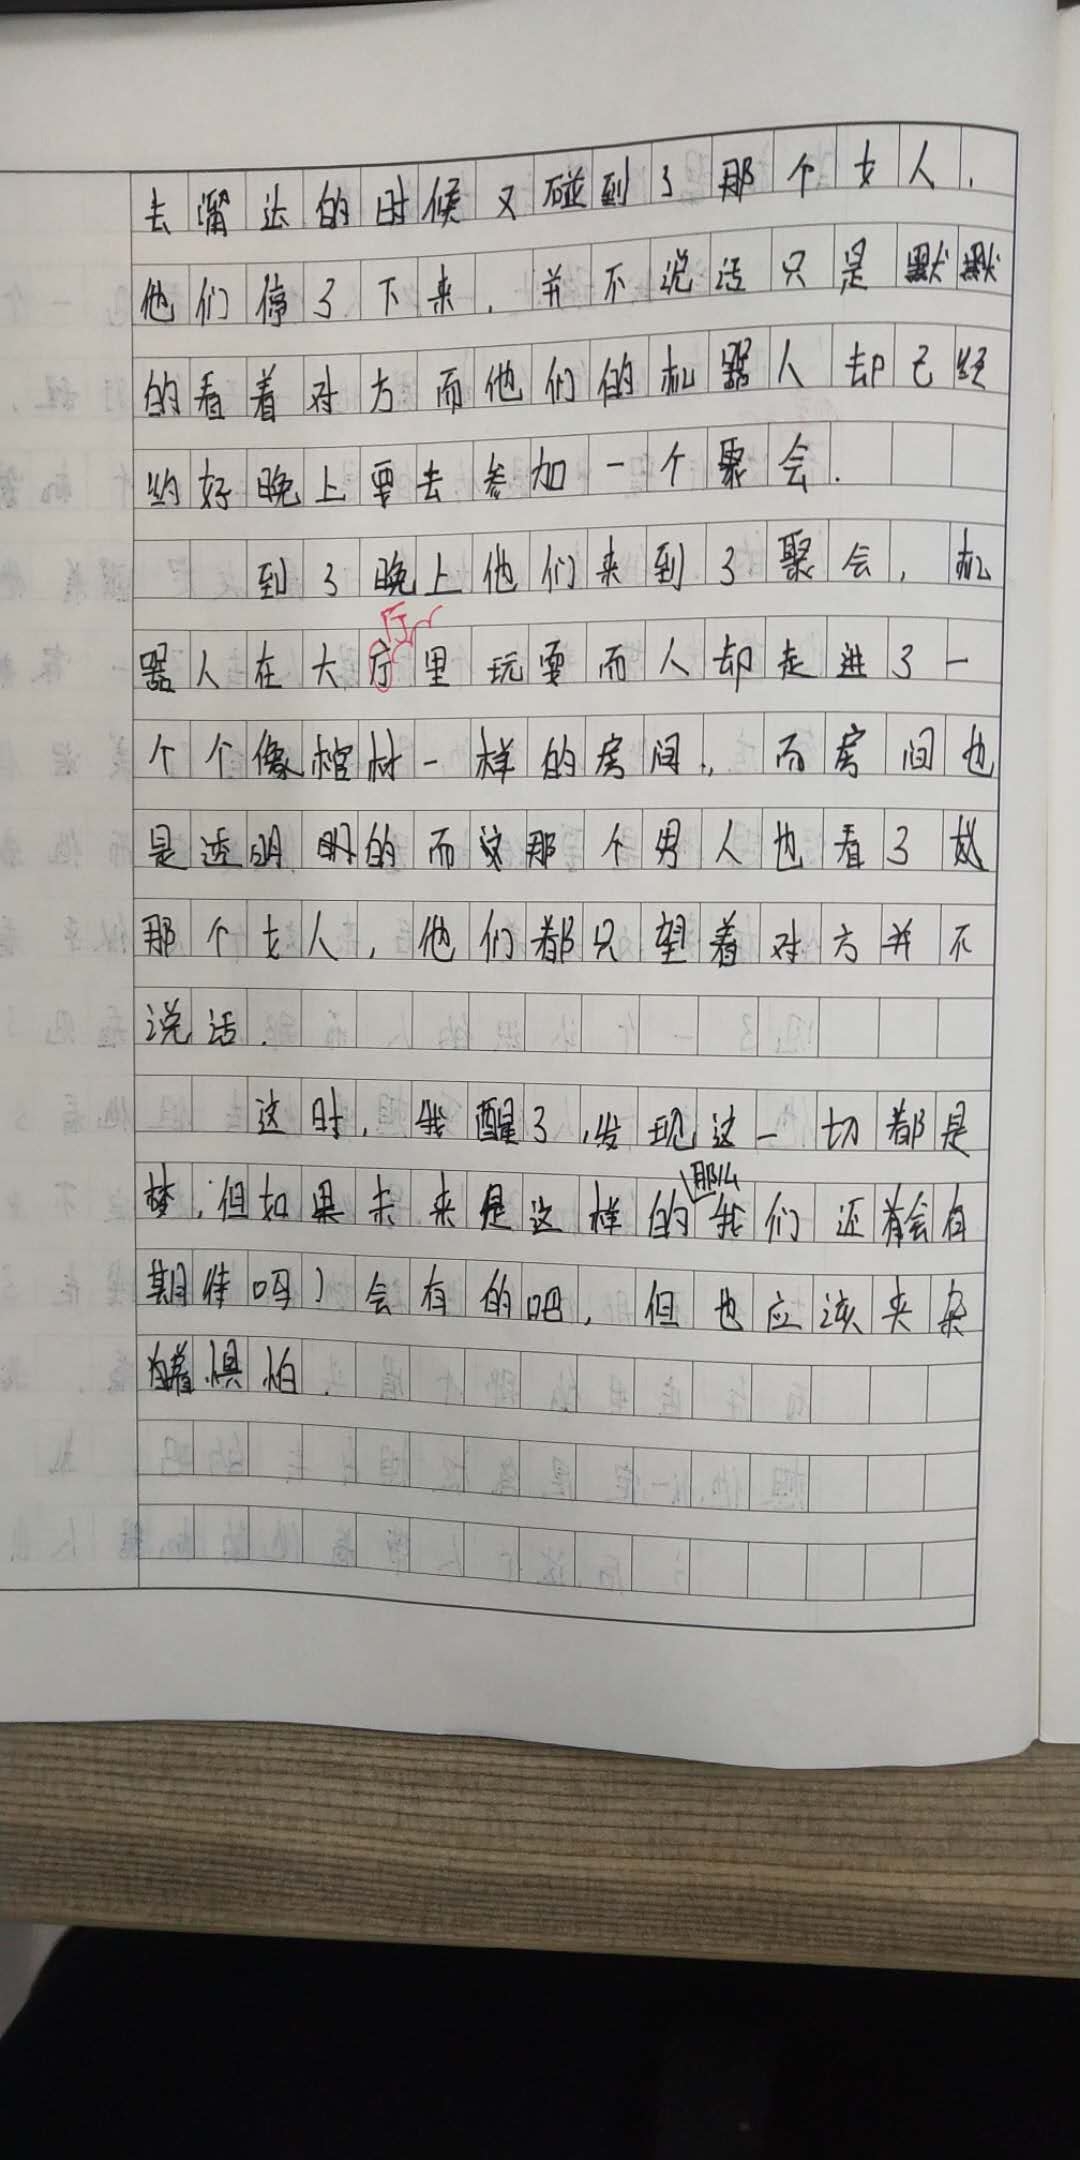 去溜达的时候又碰到了那个女人.
他们停了下来.并不说话只是默默
的看着对方而他们的机器人却已经
约好晚上要去参加一个聚会.
到了晚上他们来到了聚会,机
厅
器人在大厅里玩耍而人却走进了一
个个像棺材一样的房间.,而房间也
是透明的而那个男人也看了
那个女人,他们都只望着对方并不
说话.
这时,我醒了,发现这一切都是
那么
梦,但如果未来是这样的我们还会有
期待吗?会有的吧,但也应该夹杂
着惧怕.